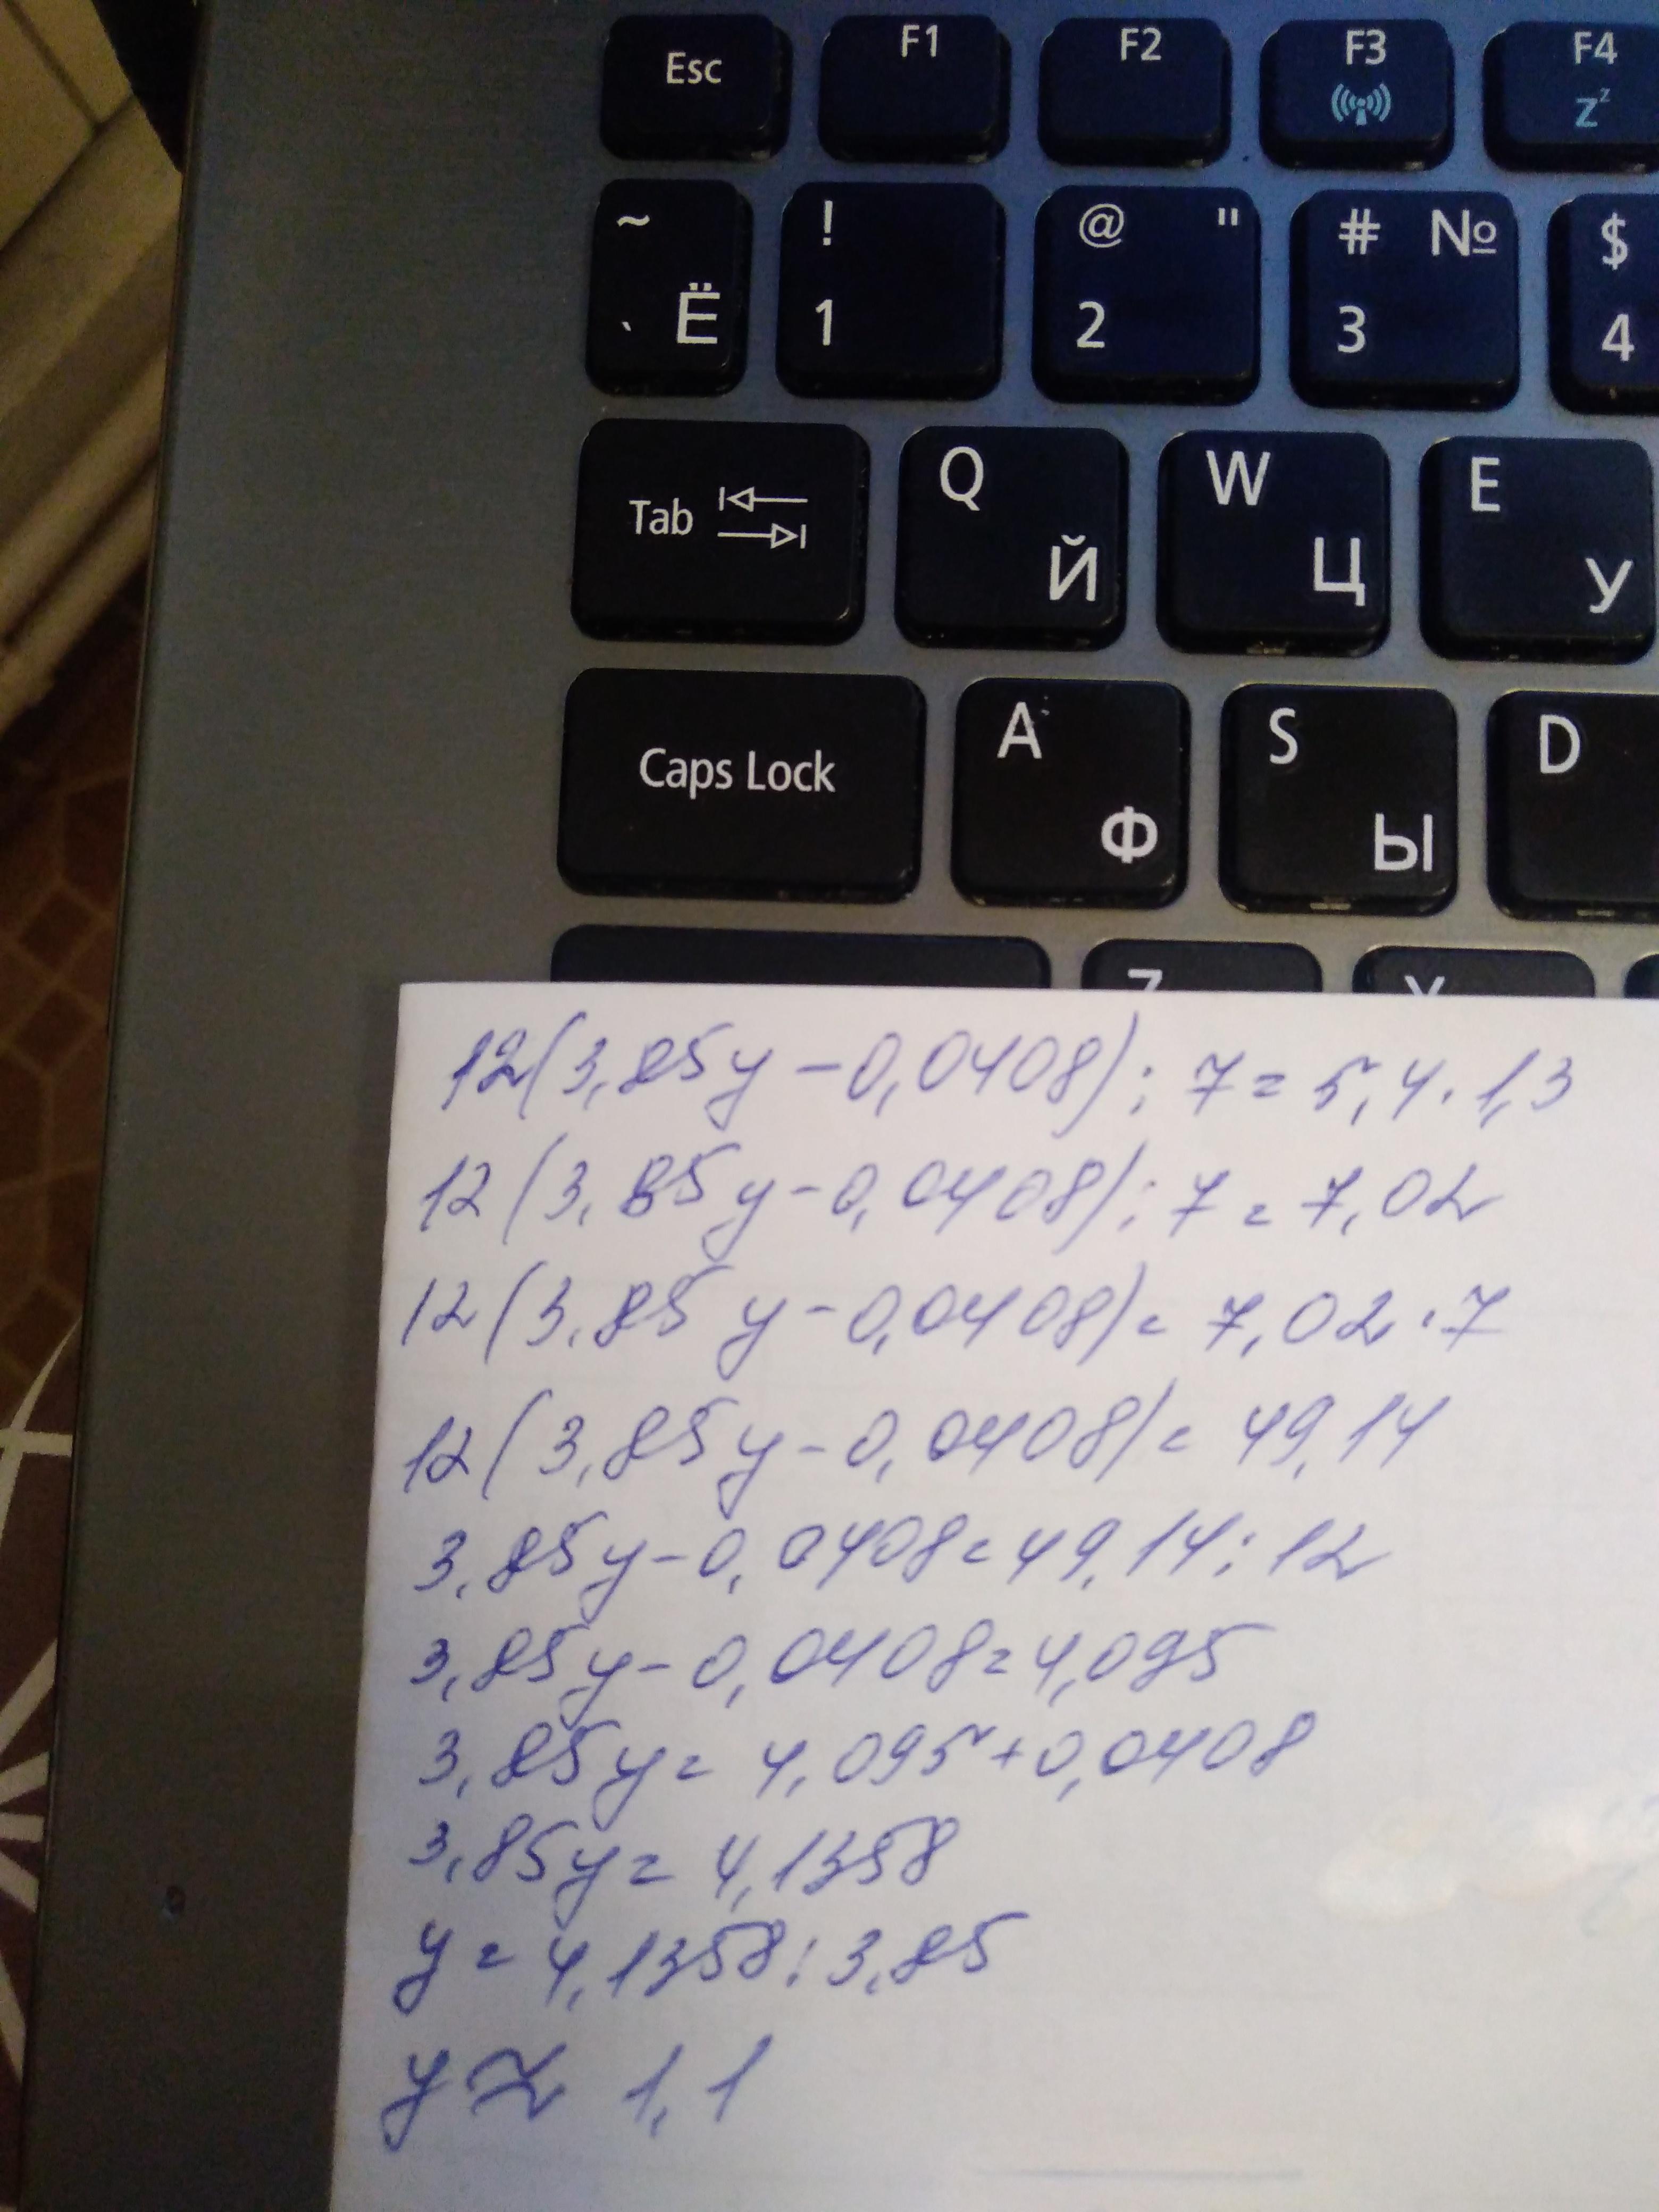 Esc F1 F2 F3 F4 Zz
~ ` Ё ! 1 @ " 2 # № 3 $ 4
Tab Q Й W Ц E У
Caps Lock A Ф S Ы D
Z
12(3,85y-0,0408):7=5,4·1,3
12(3,85y-0,0408):7=7,02
12(3,85y-0,0408)=7,02·7
12(3,85y-0,0408)=49,14
3,85y-0,0408=49,14:12
3,85y-0,0408=4,095
3,85y=4,095+0,0408
3,85y=4,1358
y=4,1358:3,85
y≈1,1